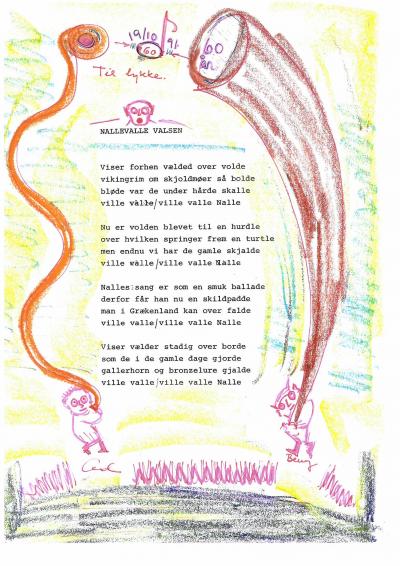 19/10 91
60
60
år
Til lykke.
NALLEVALLE VALSEN
Viser forhen vælded over volde
vikingrim om skjoldmøer så bolde
bløde var de under hårde skalle
ville valle/ville valle Nalle
Nu er volden blevet til en hurdle
over hvilken springer frem en turtle
men endnu vi har de gamle skjalde
ville valle/ville valle Nalle
Nalles sang er som en smuk ballade
derfor får han nu en skildpadde
man i Grækenland kan over falde
ville valle/ville valle Nalle
Viser vælder stadig over borde
som de i de gamle dage gjorde
gallerhorn og bronzelure gjalde
ville valle/ville valle Nalle
Benny